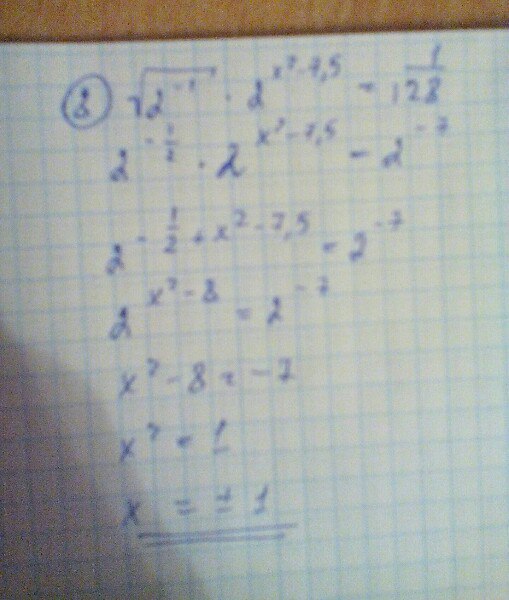 8 √2⁻¹ · 2^(x²-7,5) = 1/128
2^(-1/2) · 2^(x²-7,5) = 2^(-7)
2^(-1/2+x²-7,5) = 2^(-7)
2^(x²-8) = 2^(-7)
x² - 8 = -7
x² = 1
x = ± 1